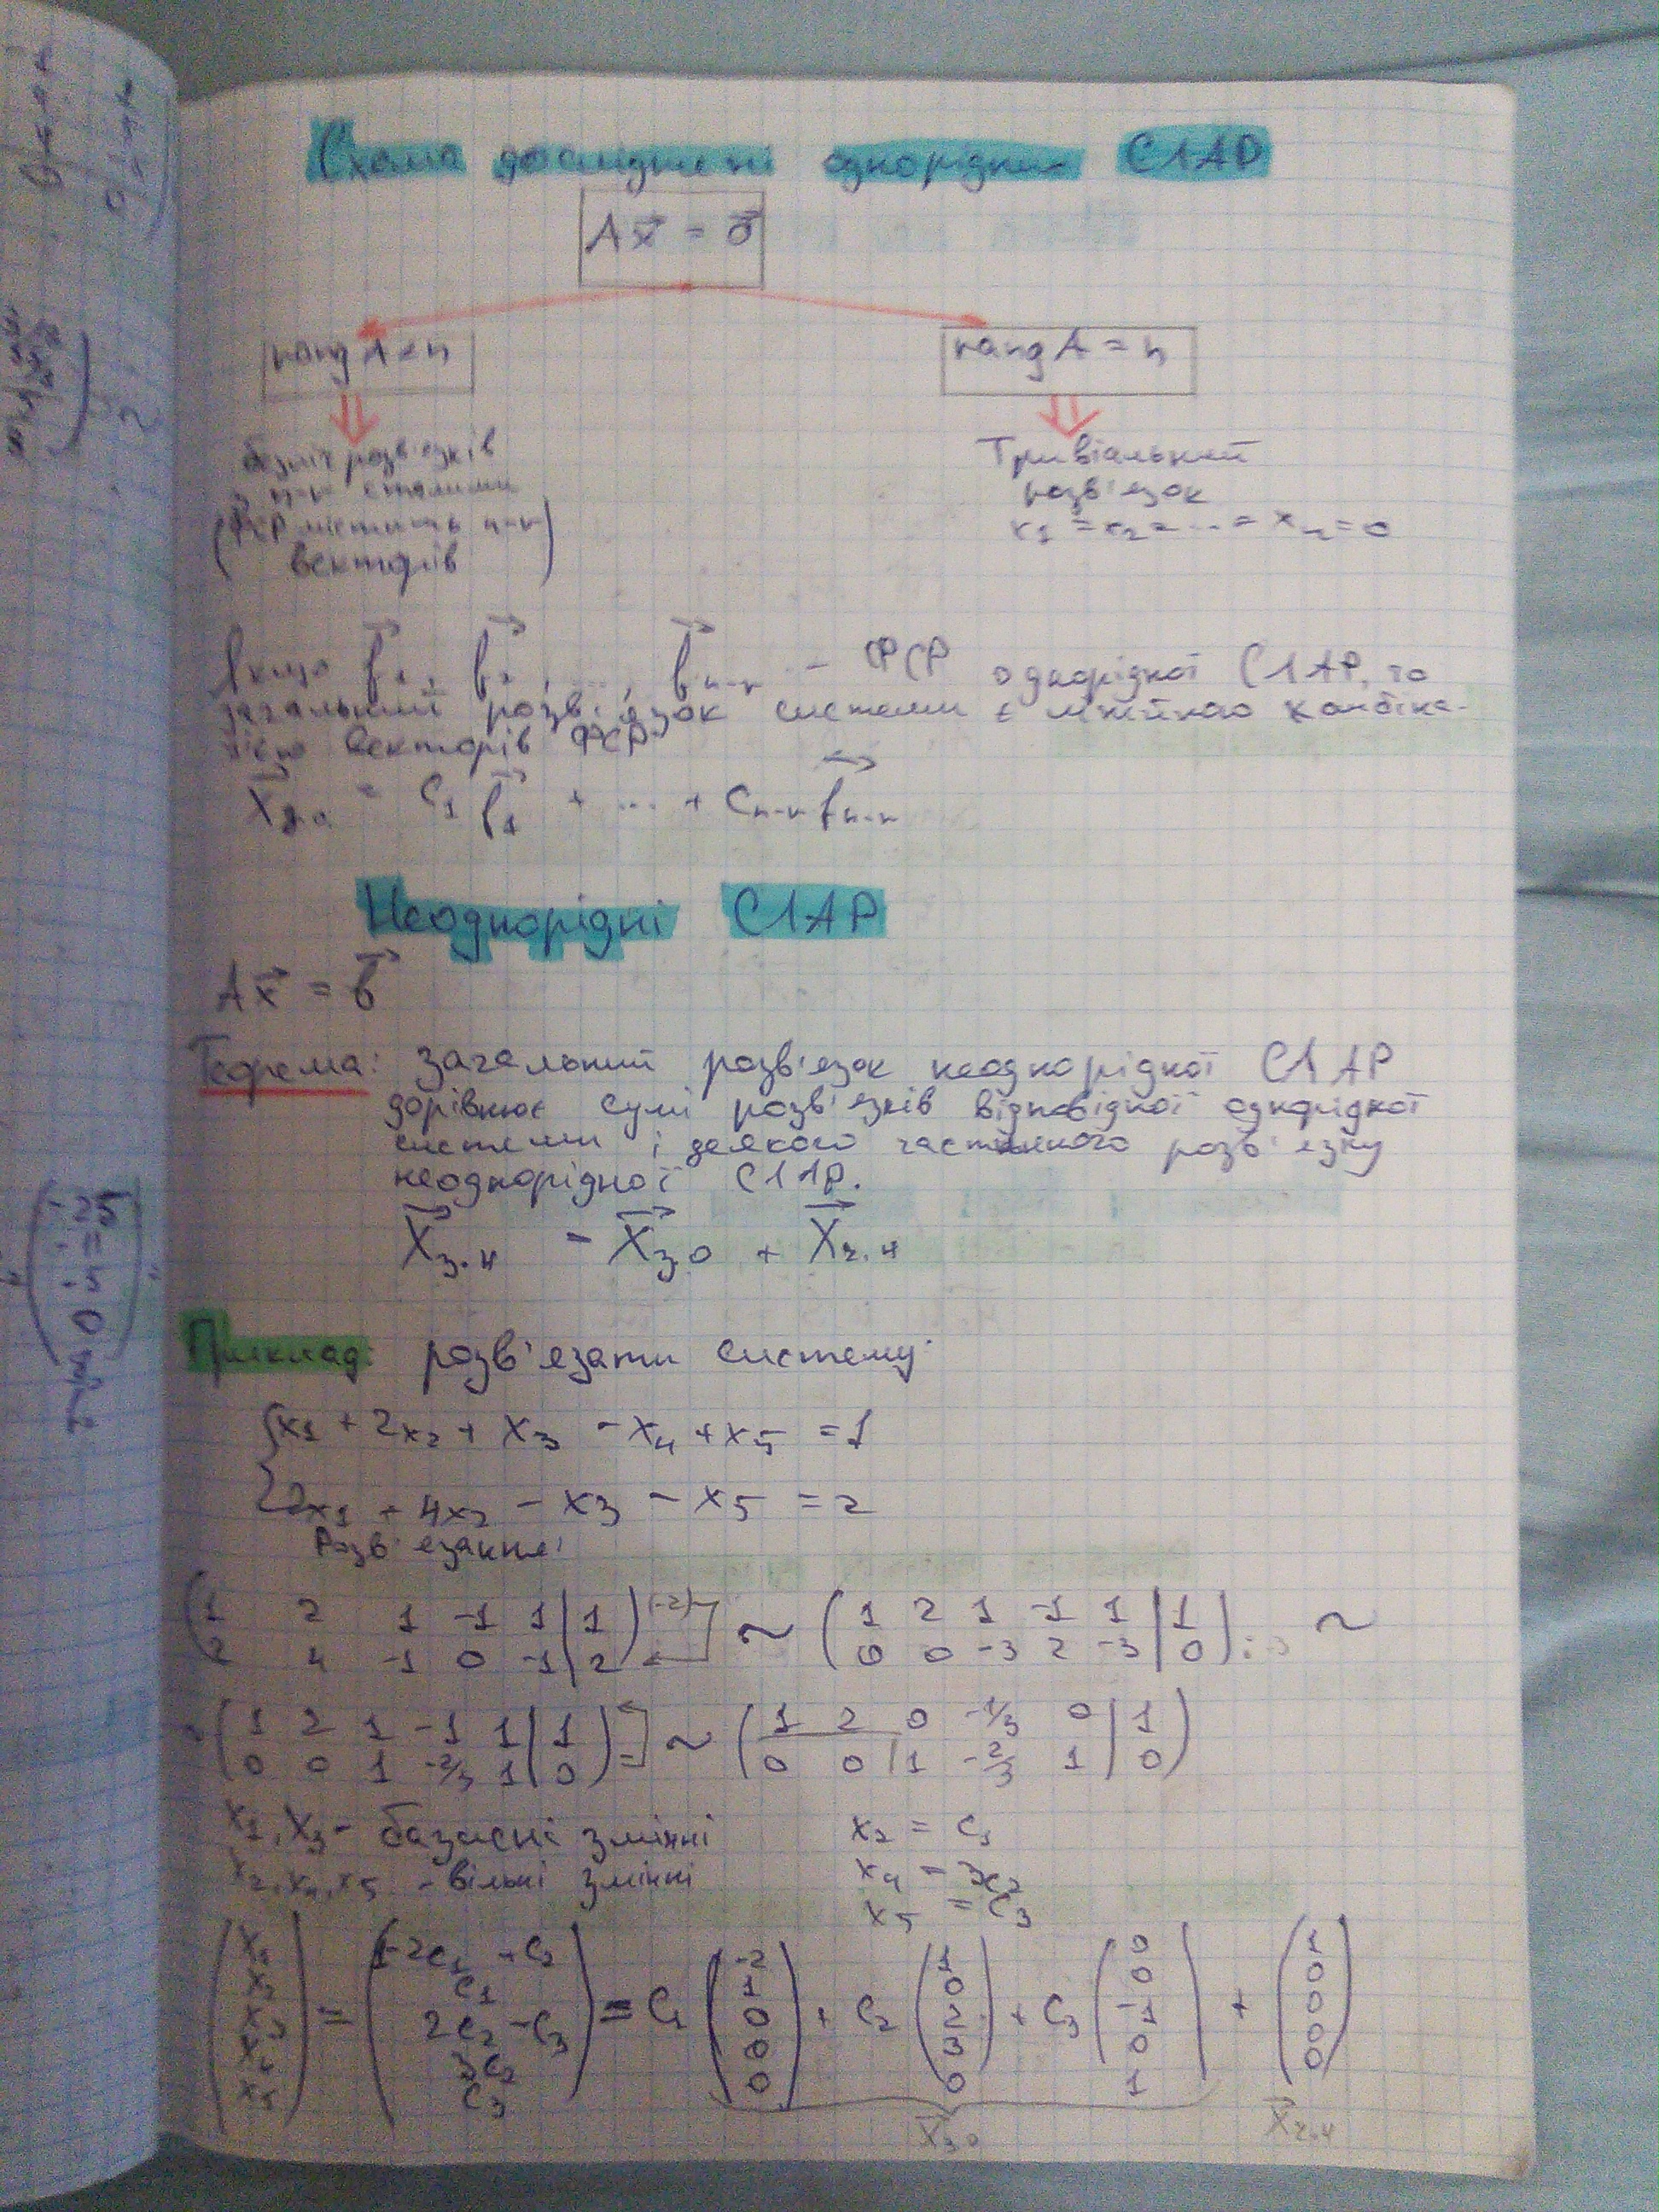 Схема досліджені однорідних СЛАР
Ax⃗ = 0⃗
rang A < n
rang A = n
безліч розв'язків
з n-r сталими
(ФСР містить n-r
векторів)
Тривіальний
розв'язок
x₁ = x₂ = ... = xₙ = 0
Якщо f⃗₁, f⃗₂, ..., f⃗ₙ₋ᵣ - ФСР однорідної СЛАР, то
загальний розв'язок системи є лінійною комбіна-
цією векторів ФСР
X⃗з.о = C₁ f⃗₁ + ... + Cₙ₋ᵣ f⃗ₙ₋ᵣ
Неоднорідні СЛАР
Ax⃗ = b⃗
Теорема: загальний розв'язок неоднорідної СЛАР
дорівнює сумі розв'язків відповідної однорідної
системи і деякого частинного розв'язку
неоднорідної СЛАР.
X⃗з.н = X⃗з.о + X⃗ч.н
Приклад: розв'язати систему:
{x₁ + 2x₂ + x₃ - x₄ + x₅ = 1
2x₁ + 4x₂ - x₃ - x₅ = 2
Розв'язання:
(1 2 1 -1 1 | 1) (-2) ~ (1 2 1 -1 1 | 1) ~
(2 4 -1 0 -1 | 2) (0 0 -3 2 -3 | 0)
(1 2 1 -1 1 | 1) ~ (1 2 0 -1/3 0 | 1)
(0 0 1 -2/3 1 | 0) (0 0 1 -2/3 1 | 0)
x₁, x₃ - базисні змінні x₂ = C₁
x₂, x₄, x₅ - вільні змінні x₄ = 3C₂
x₅ = C₃
(x₁ x₂ x₃ x₄ x₅) = (1-2C₁+C₂ C₁ 2C₂-C₃ 3C₂ C₃) = C₁ (-2 1 0 0 0) + C₂ (1 0 2 3 0) + C₃ (0 0 -1 0 1) + (1 0 0 0 0)
X⃗з.о X⃗ч.н